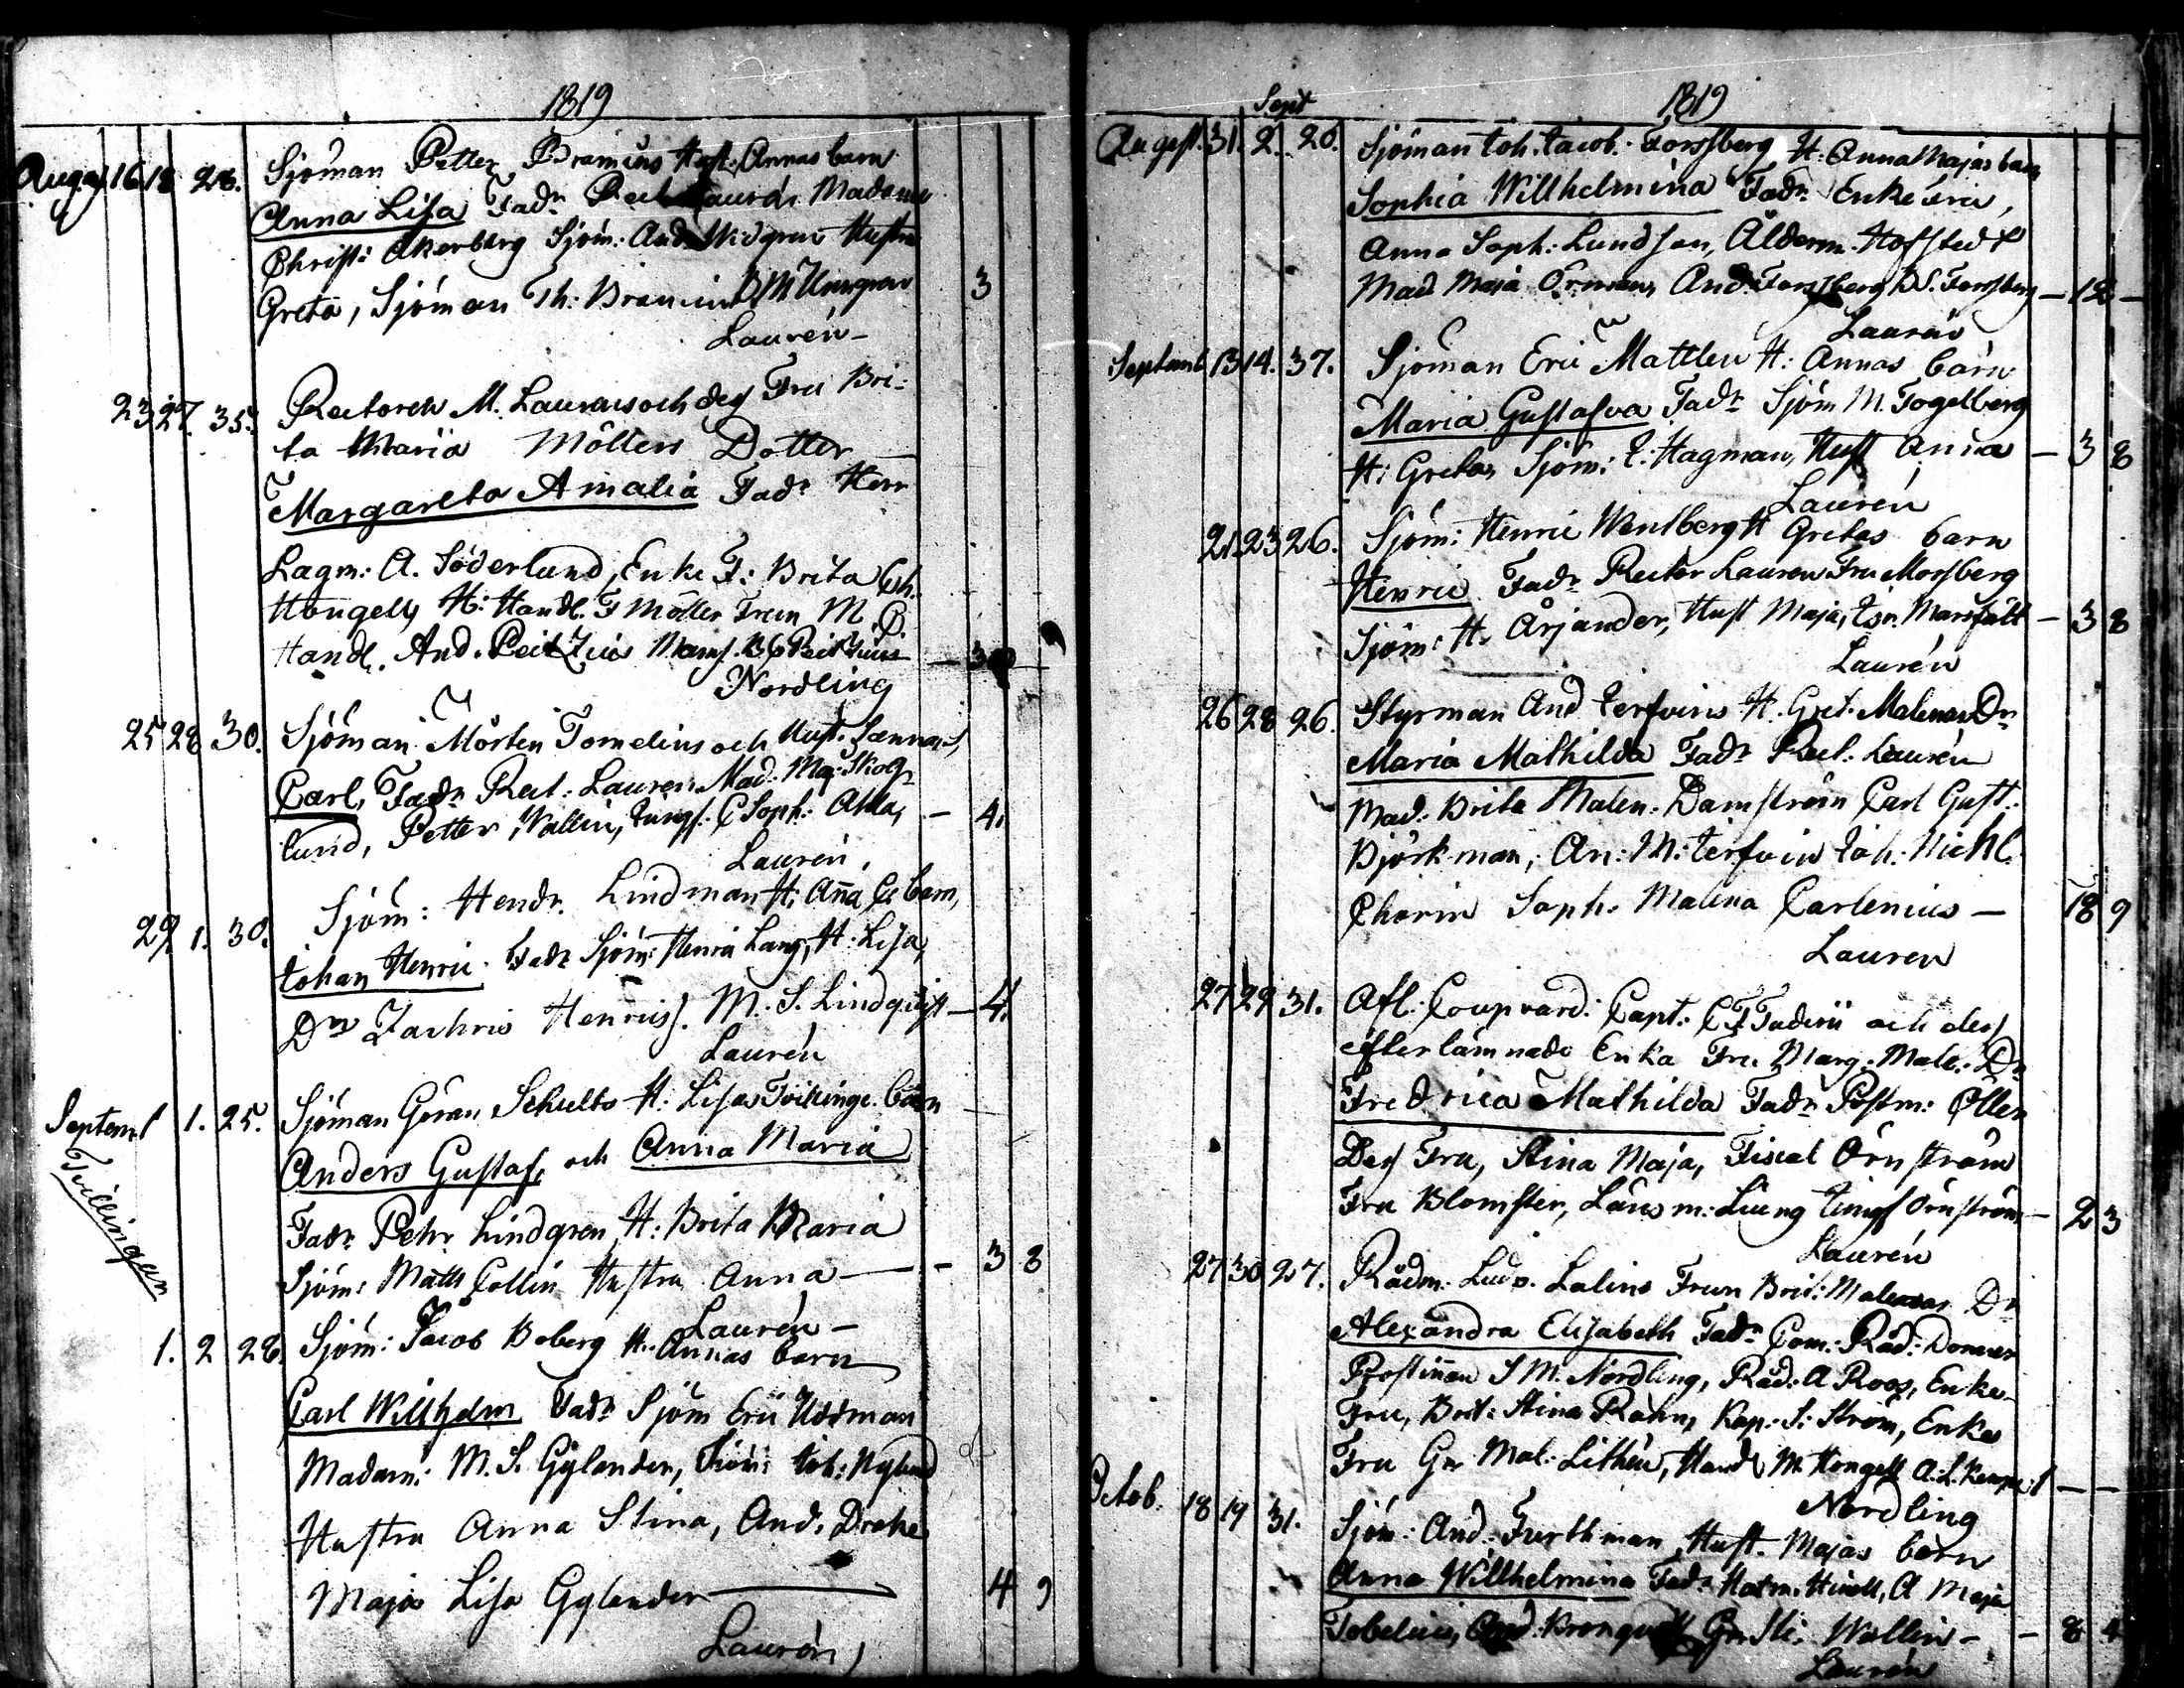 1819
August 16 18 28. Sjöman Petter Bramius Hust. Annas barn
Anna Lisa Fadr Rect Laurén Madame
Christ: Åkerberg Sjöm: And Widgren Hustru
Greta, Sjöman Th: Bramius 3
Laurén
23 27. 35. Rectoren M. Lauræus och dess Fru Bri-
ta Maria Möllers Dotter
Margareta Amalia Fadr Herr
Lagm: A. Söderlund, Enke F: Brita Ch.
Hongell, H: Handl. F Möller Frun M. C.
Handl. And. Peitzius Mams. Peitzius
Nordling
25 28 30. Sjöman Mårten Tomelius och Hust. Sannas S
Carl, Fadr Rect: Lauren Mad. Maj: Skog-
lund, Petter Wallin, Jungf. C Soph: Ahla, 4.
Laurén.
29 1. 30. Sjöm: Hendr. Lindman H: Anna C: barn,
Johan Henric. Fadr Sjöm: Henric Lang, H: Lisa,
Dr Zachris Henriss. M. S. Lindquist 4.
Laurén
Septemb 1. 25. Sjöman Göran Schultz H: Lisas Tvillinge barn
Tvillingar
Anders Gustaf, och Anna Maria
Fadr Pehr Lindgren, H: Brita Maria
Sjöm: Matts Collin Hustru Anna 3 8
Laurén
1. 2 28. Sjöm: Jacob Boberg H. Annas barn
Carl Willhelm Fadr Sjöm Eric Uddman
Madam: M. S. Gylander, Sjöm: Joh: Nylund
Hustru Anna Stina, And. Drake
Maja Lisa Gylander 4 9
Laurén
1819
Sept
August. 31. 2. 20. Sjöman Joh. Jacob. Forssberg H: Anna Majas barn
Sophia Willhelmina Fadr Enke Fru,
Anna Soph: Lundson, Ålderm. Hofstedt
Mad. Maja Örman, And. Forssberg B S. Forssberg 12
Laurén
Septemb 13 14. 37. Sjöman Eric Mattlin H: Annas barn
Maria Gustafva Fadr Sjöm M. Fogelberg
H: Greta, Sjöm: E. Hagman, Hust Anna 3 8
Laurén
21. 23 26. Sjöm: Henric Wentberg H Gretas barn
Henric Fadr Rector Lauren Fru Morsberg
Sjöm: H. Arjander, Hust Maja, Marsfält 3 8
Laurén
26 28 26. Styrman And Jerfvin H. Gret. Malenas Dr
Maria Mathilda Fadr Rect: Laurén
Mad: Brita Malen. Damström Carl Gust:
Björkman, An: M: Jerfvin Joh. Michl.
Chorin Soph. Malena Carlenius 18 9
Lauren
27 29 31. Afl: Coupvard: Capt: och dess
Efterlämnade Enka Fru Marg: Male: Dr
Fredrica Mathilda Fadr Postm: Öller
Dess Fru, Stina Maja, Fiscal Örnström
Fru Blomster, Länsm: Liung Jungf Örnström 2 3
Laurén
27 30 27. Rådm. Ludv. Lalins Frun Brit: Malenas Dr
Alexandra Elisabeth Fadr Com: Råd: Donner
Prostinnan S M. Nordling, Råd: A Roos, Enke-
Fru, Brit: Stina Rahn, Kap: S: Ström, Enke
Fru Gr Mal: Lithén, Handl M. Hongell A. L. Kempe
Nordling
Octob. 18 19 31. Sjöm: And: Furthman Hust. Majas barn
Anna Willhelmina Fadr Hatm. A Maja
Tobelius, And: Bronqvist Gr. Sti. Wallin 8 4
Laurén